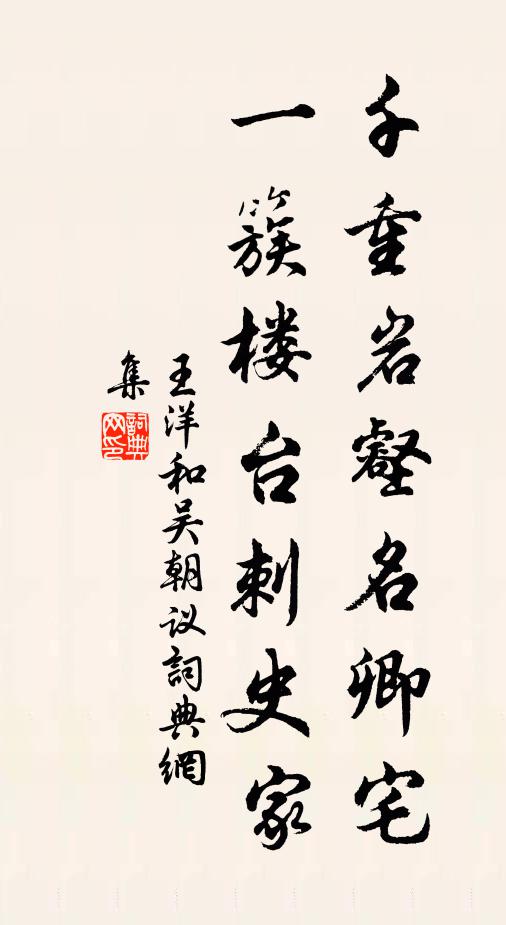 千重岩壑名卿宅
一簇楼台刺史家
王洋和吴朝议詞典網
集
詞典
网印